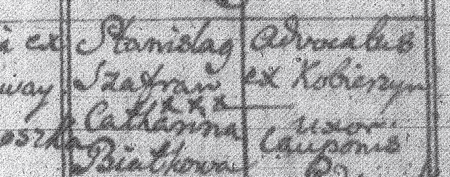 ex Stanislag Advocatus
way Szafran ex Kobierzyn
Catharina uxor
oszka Białkowa Cauponis